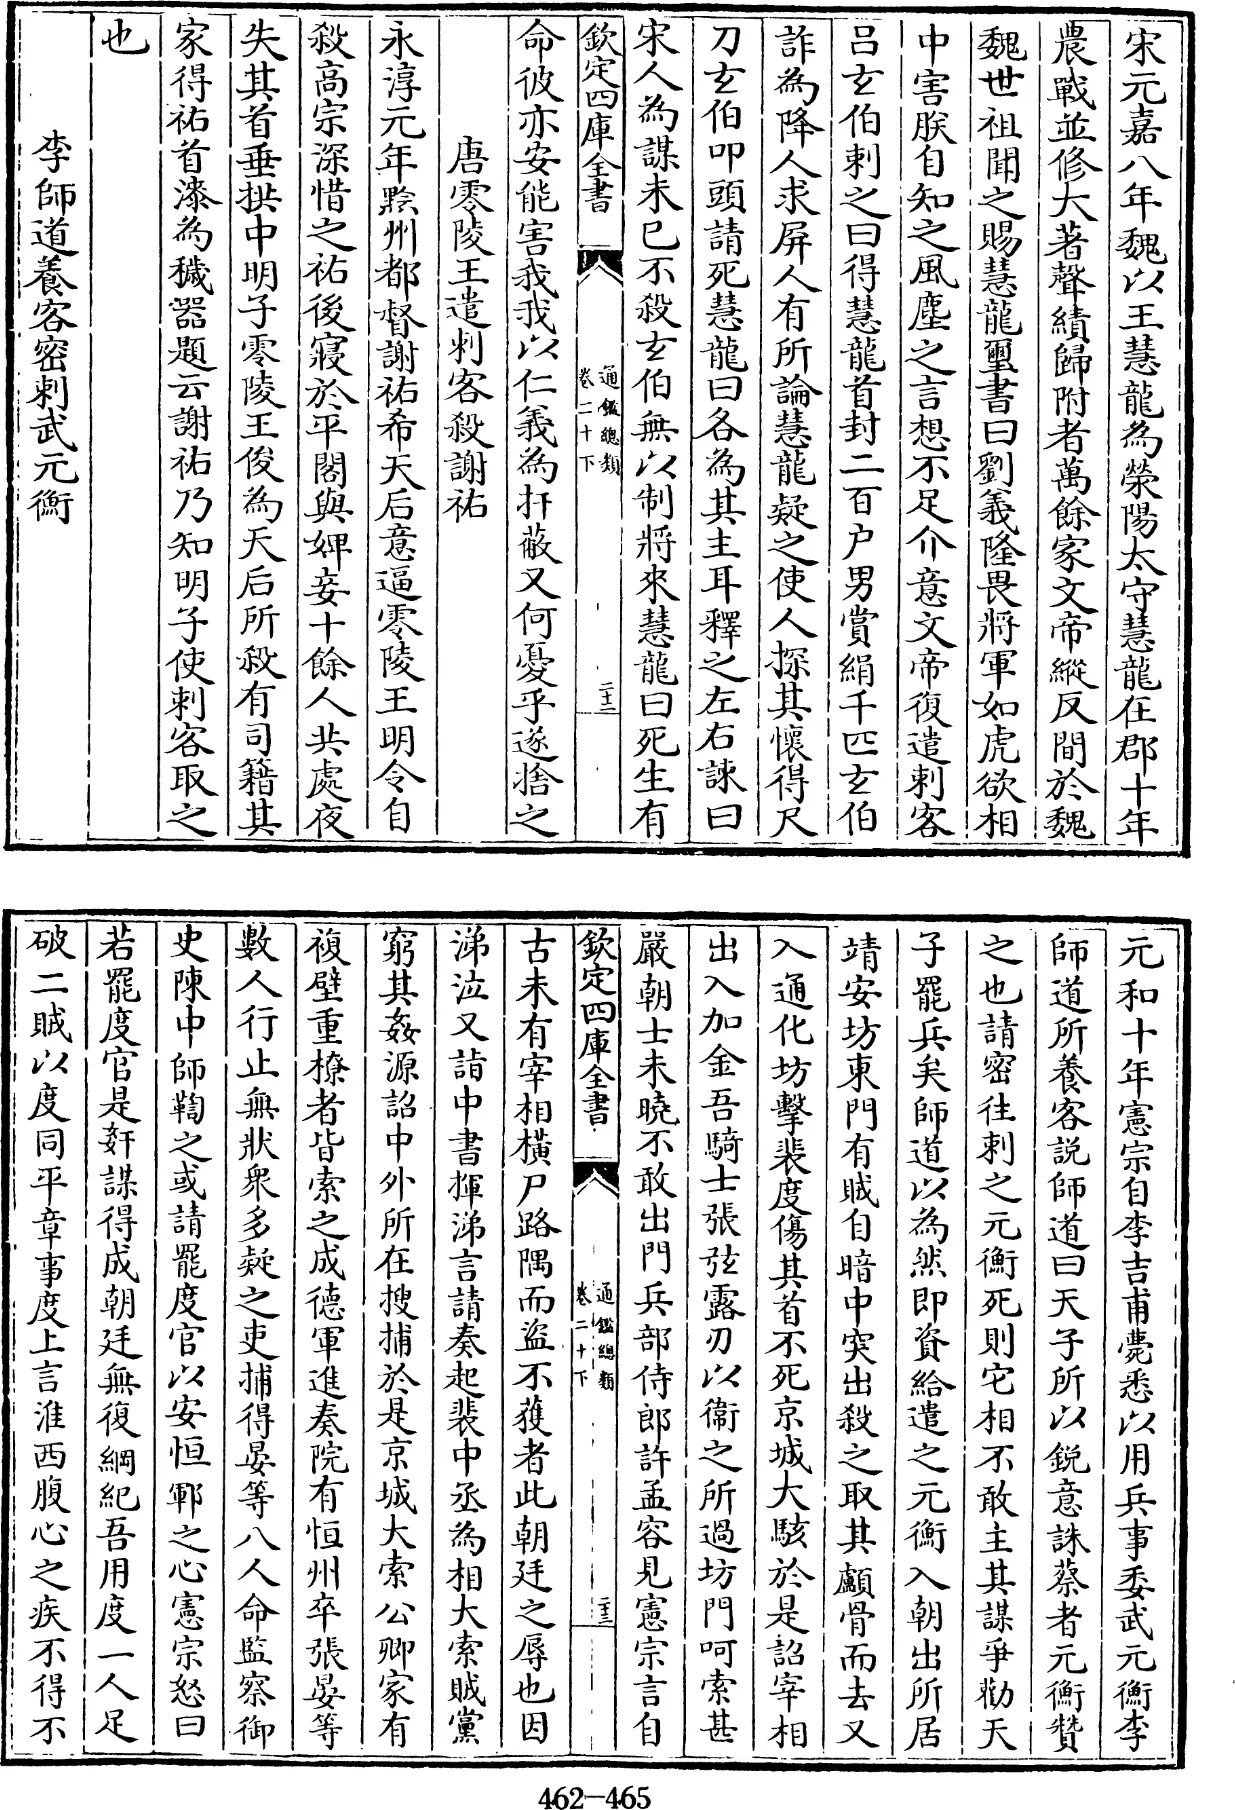 宋元嘉八年魏以王慧龍為滎陽太守慧龍在郡十年
農戰並修大著聲績歸附者萬餘家文帝縱反間於魏
魏世祖聞之賜慧龍璽書曰劉義隆畏將軍如虎欲相
中害朕自知之風塵之言想不足介意文帝復遣刺客
呂玄伯刺之曰得慧龍首封二百户男賞絹千匹玄伯
詐為降人求屏人有所論慧龍疑之使人探其懷得尺
刀玄伯叩頭請死慧龍曰各為其主耳釋之左右諫曰
宋人為謀未已不殺玄伯無以制將來慧龍曰死生有
欽定四庫全書
通鑑總類
卷二十下
二十二
命彼亦安能害我我以仁義為扞蔽又何憂乎遂捨之
唐零陵王遣刺客殺謝祐
永淳元年黔州都督謝祐希天后意逼零陵王明令自
殺高宗深惜之祐後寢於平閣與婢妾十餘人共處夜
失其首垂拱中明子零陵王俊為天后所殺有司籍其
家得祐首漆為穢器題云謝祐乃知明子使刺客取之
也
李師道養客密刺武元衡
元和十年憲宗自李吉甫薨悉以用兵事委武元衡李
師道所養客説師道曰天子所以鋭意誅蔡者元衡贊
之也請密往刺之元衡死則它相不敢主其謀爭勸天
子罷兵矣師道以為然即資給遣之元衡入朝出所居
靖安坊東門有賊自暗中突出殺之取其顱骨而去又
入通化坊擊裴度傷其首不死京城大駭於是詔宰相
出入加金吾騎士張弦露刃以衛之所過坊門呵索甚
嚴朝士未曉不敢出門兵部侍郎許孟容見憲宗言自
欽定四庫全書
通鑑總類
卷二十下
二十三
古未有宰相横尸路隅而盜不獲者此朝廷之辱也因
涕泣又詣中書揮涕言請奏起裴中丞為相大索賊黨
窮其姦源詔中外所在搜捕於是京城大索公卿家有
複壁重橑者皆索之成德軍進奏院有恒州卒張晏等
數人行止無狀衆多疑之吏捕得晏等八人命監察御
史陳中師鞫之或請罷度官以安恒鄆之心憲宗怒曰
若罷度官是奸謀得成朝廷無復綱紀吾用度一人足
破二賊以度同平章事度上言淮西腹心之疾不得不
462—465